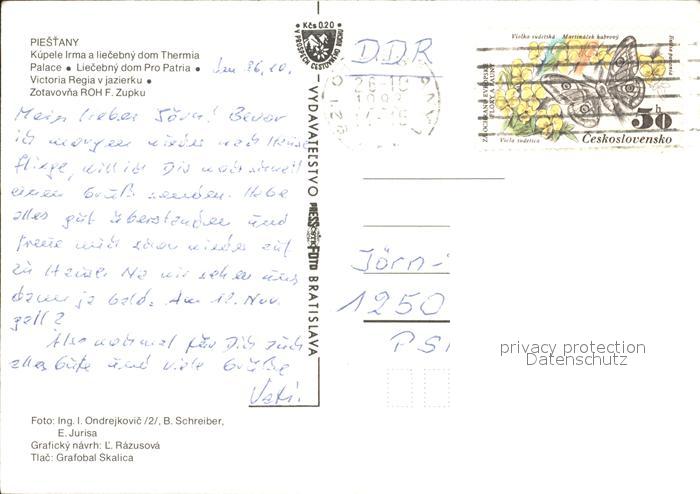 PIEŠŤANY
Kúpele Irma a liečebný dom Thermia
Palace ● Liečebný dom Pro Patria ●
Victoria Regia v jazierku ●
Zotavovňa ROH F. Zupku
den 26.10.
Mein lieber Jörn! Bevor
ich morgen wieder nach Hause
fliege, will ich Dir noch schnell
einen Gruß senden. Habe
alles gut überstanden und
freue mich schon wieder auf
zu Hause. Na wir sehen uns
dann ja bald. Am 12. Nov.
gell?
Also nochmal für Dich auch
alles Gute und viele Grüße
Vati.
Foto: Ing. I. Ondrejkovič /2/, B. Schreiber,
E. Jurisa
Grafický návrh: Ľ. Rázusová
Tlač: Grafobal Skalica
Kčs 0.20
V PROSPECH CESTOVNÉHO RUCHU
VYDAVATEĽSTVO PRESSFOTO BRATISLAVA
DDR
26-10
Vìolka sudetská Martináček habrový
ZA OCHRANU EVROPSKÉ
FLÓRY A FAUNY
Viola sudetica
50 h
Československo
Jörn
1250
PSF
privacy protection
Datenschutz